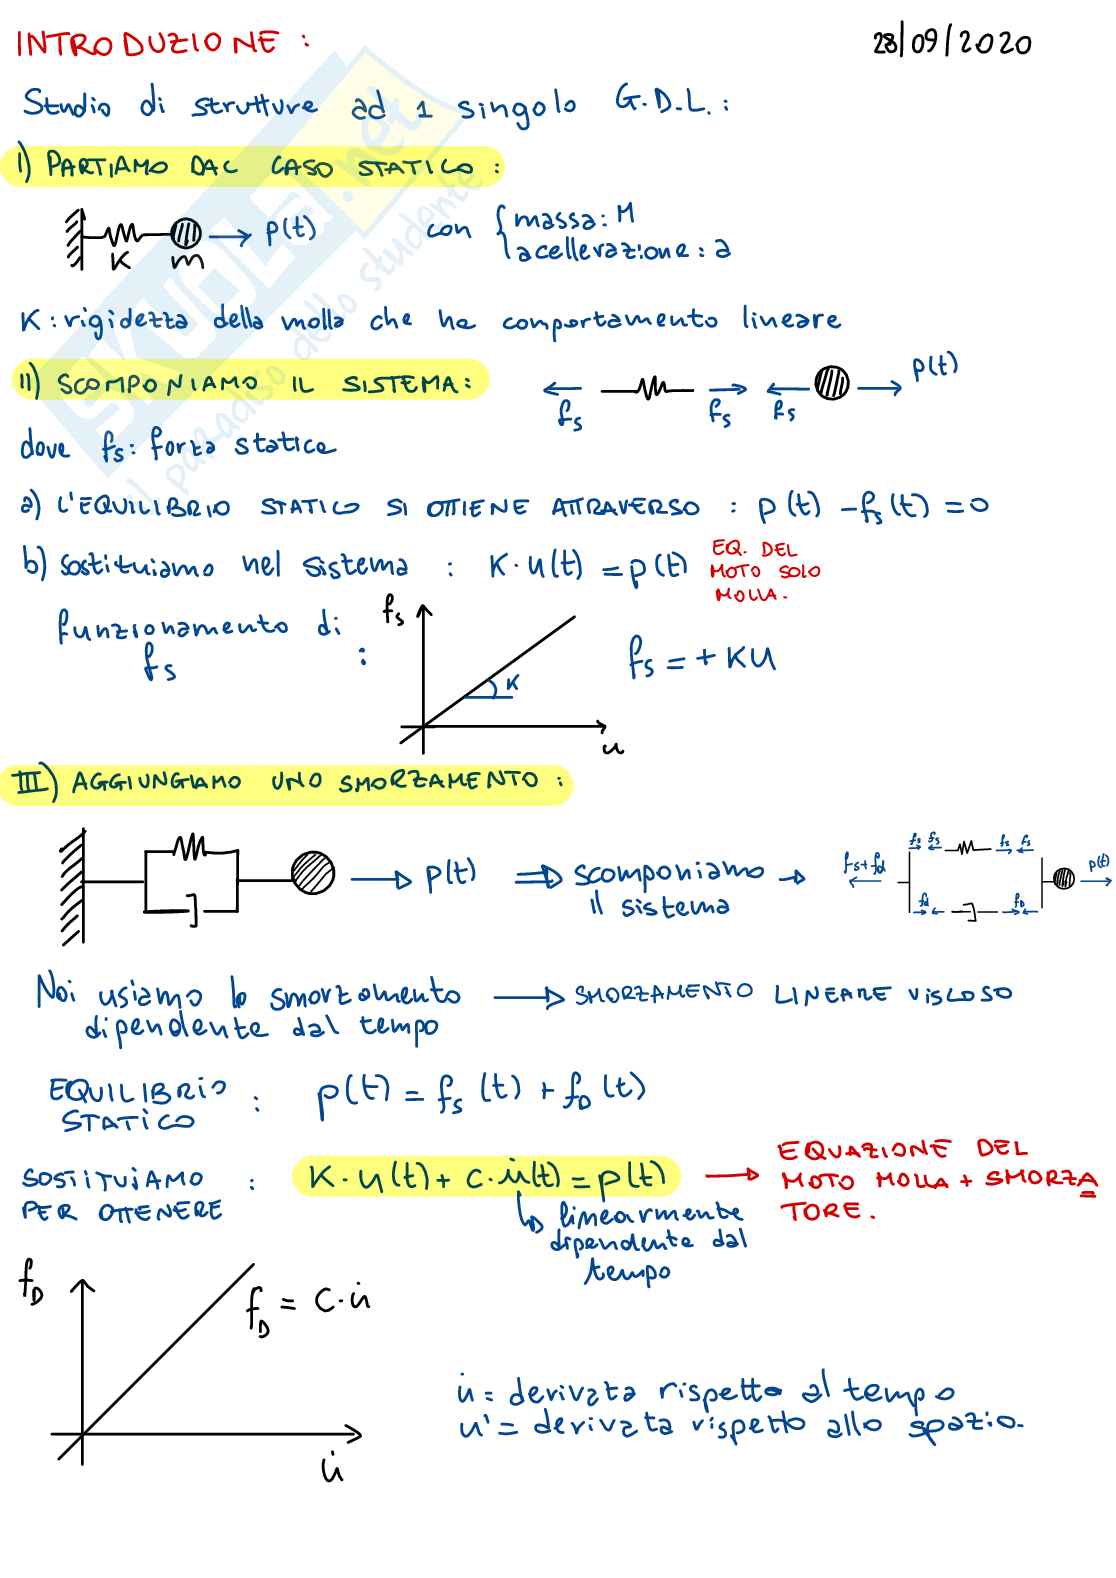 INTRODUZIONE :
28/09/2020
Studio di strutture ad 1 singolo G.D.L.:
I) PARTIAMO DAL CASO STATICO :
K m p(t) con { massa: M
accellerazione: a
K : rigidezza della molla che ha comportamento lineare
II) SCOMPONIAMO IL SISTEMA:
fs fs fs p(t)
dove fs: forza statica
a) L'EQUILIBRIO STATICO SI OTTIENE ATTRAVERSO : p(t) - fs(t) = 0
b) sostituiamo nel sistema : K·u(t) = p(t)
EQ. DEL
MOTO SOLO
MOLLA.
funzionamento di
fs :
fs
K
u
fs = + KU
III) AGGIUNGIAMO UNO SMORZAMENTO :
p(t) ⇒ scomponiamo →
il sistema
fs fs fs fs
fs+fd p(t)
fd fD
Noi usiamo lo smorzamento → SMORZAMENTO LINEARE VISCOSO
dipendente dal tempo
EQUILIBRIO
STATICO : p(t) = fs(t) + fD(t)
SOSTITUIAMO
PER OTTENERE : K·u(t) + c·u̇(t) = p(t) →
EQUAZIONE DEL
MOTO MOLLA + SMORZA
TORE.
↳ linearmente
dipendente dal
tempo
fD
fD = C·u̇
u̇
u̇ = derivata rispetto al tempo
u' = derivata rispetto allo spazio.
SKUOLA.net
il paradiso dello studente